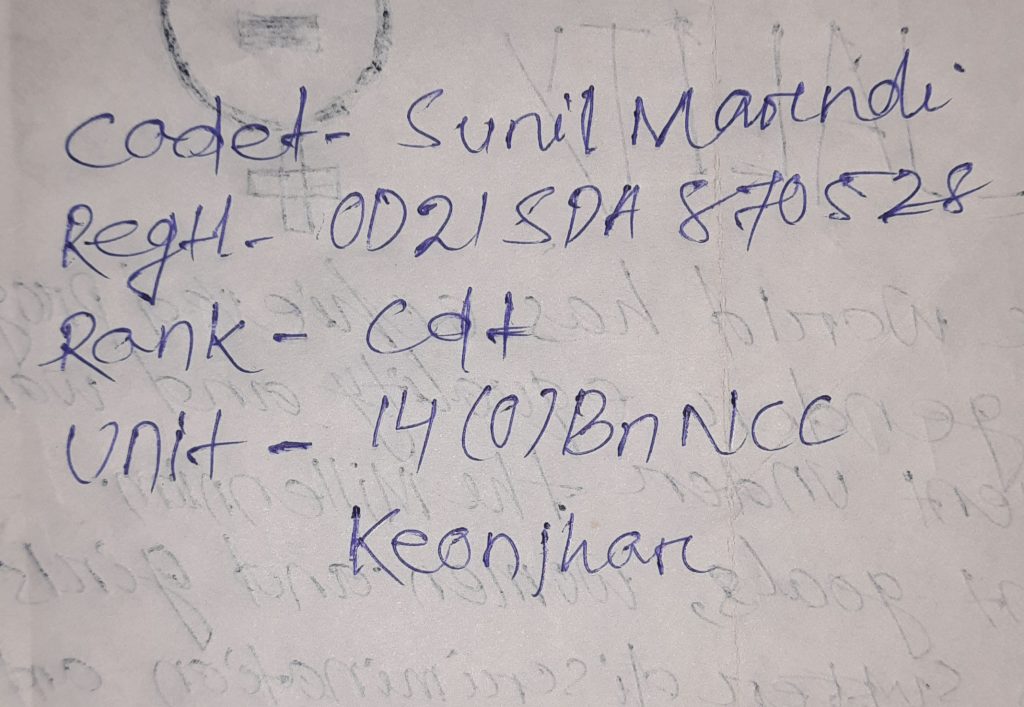 Cadet- Sunil Marndi
Regtl- OD21SDA 870528
Rank - Cdt
Unit - 14 (O) Bn NCC
Keonjhar